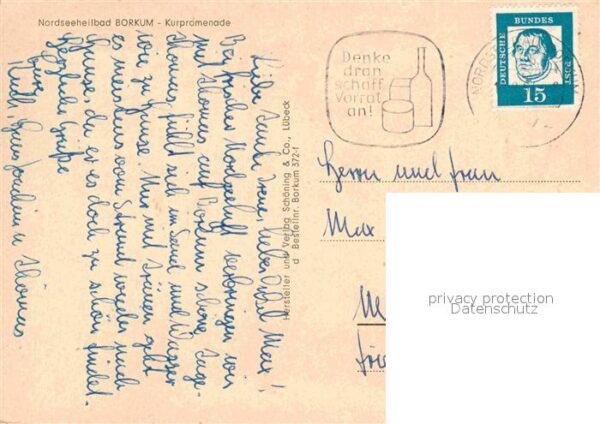 Nordseeheilbad BORKUM - Kurpromenade
Liebe Tante Irene, lieber Onkel Max!
Bei frischer Nordseeluft verbringen wir
mit Thomas auf Borkum schöne Tage.
Thomas fühlt sich im Sand und Wasser
wie zu Hause. Nur mit Tränen geht
es meistens vom Strand wieder nach
Hause, da er es doch zu schön findet.
Herzliche Grüße
Eure
Ruth, Hans Joachim u Thomas
Hersteller und Verlag Schöning & Co., Lübeck
d Bestellnr. Borkum 372-f
Denke
dran
schaff
Vorrat
an!
NORDS
DEUTSCHE BUNDES POST
15
Herrn und Frau
Max
privacy protection
Datenschutz